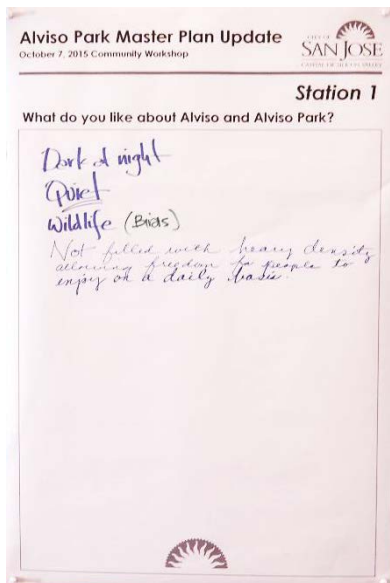 Alviso Park Master Plan Update
October 7, 2015 Community Workshop
CITY OF
SAN JOSE
CAPITAL OF SILICON VALLEY
Station 1
What do you like about Alviso and Alviso Park?
Dark at night
Quiet
Wildlife (Birds)
Not filled with heavy density
allowing freedom for people to
enjoy on a daily basis.